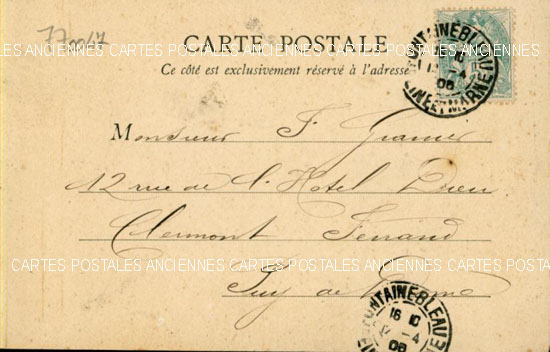 770047
CARTES POSTALES ANCIENNES CARTES POSTALES ANCIENNES CARTES POSTALES ANCIENNES
CARTE POSTALE
Ce côté est exclusivement réservé à l'adresse
FONTAINEBLEAU
10
-4
06
SEINE ET MARNE
Monsieur F.
12 rue de l'Hôtel Dieu
Clermont Ferrand
CARTES POSTALES ANCIENNES CARTES POSTALES ANCIENNES CARTES POSTALES ANCIENNES
Puy de Dome
FONTAINEBLEAU
16 10
-4
06